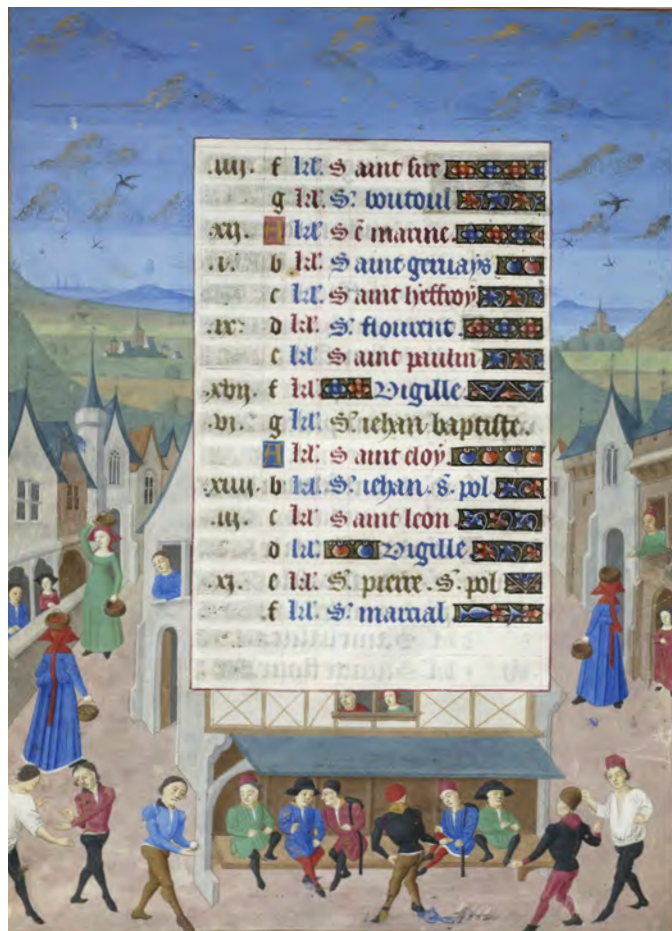 .iiij. f kl'. Saint fire
g kl'. S'. boutoul
.xij. A kl'. S ē marine
.v. b kl'. Saint geruays
c kl'. Saint heffroy
.ix. d kl'. S'. flourent.
e kl'. Saint paulin
.xvij. f kl'. Vigille
.vi. g kl'. S'. iehan baptiste.
A kl'. Saint eloy.
.xiiij. b kl'. S'. iehan. s. pol
.iij. c kl'. Saint leon
d kl'. Vigille
.xj. e kl'. S'. pierre. S'. pol
.f kl'. S'. marcial